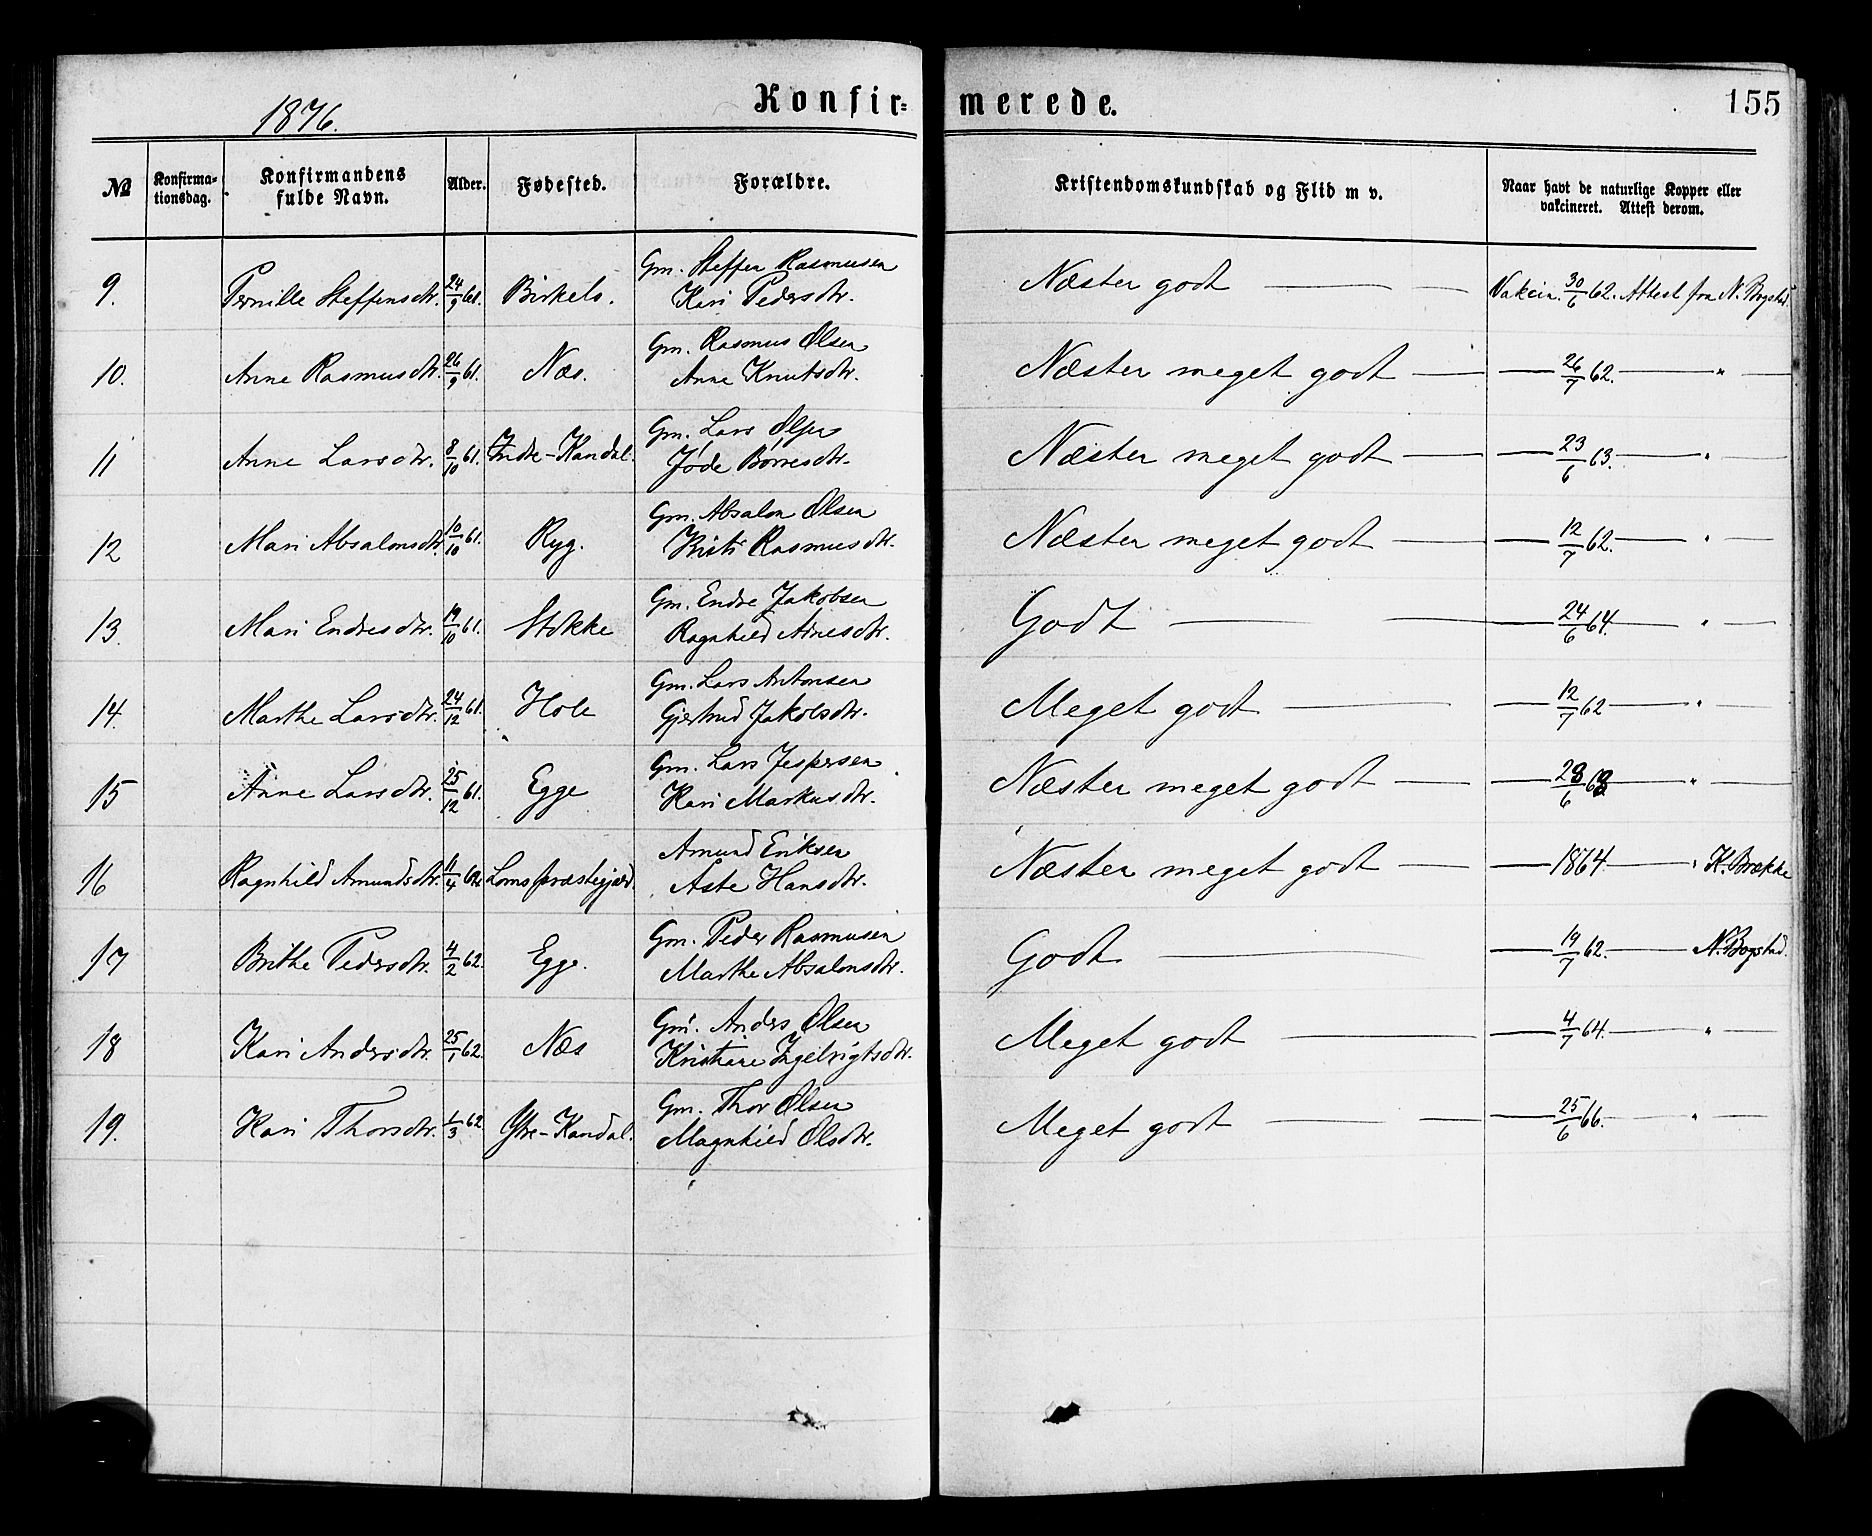 1876.
Konfir-
merede.
155
No
Konfirma-
tionsdag.
Konfirmandens
fulde Navn.
Alder.
Fødested.
Forældre.
Kristendomskundskab og Flid m v.
Naar havt de naturlige Kopper eller
vakcineret. Attest derom.
9. Pernille Steffensdtr. 24/9 61. Birkelo. Gm. Steffen Rasmusen
Kari Pedersdtr. Næsten godt — Vakcin. 30/6 62. Attest fra N. Bogstad.
10. Anne Rasmusdtr. 26/9 61. Næs. Gm. Rasmus Olsen
Anne Knutsdtr. Næsten meget godt — 26/7 62. — " —
11 Anne Larsdtr. 8/10 61. Indre-Kandal. Gm. Lars Olsen
Jøde Børresdtr. Næsten meget godt — 23/6 63. — " —
12 Mari Absalonsdtr 10/10 61. Ryg. Gm. Absalon Olsen
Kristi Rasmusdtr. Næsten meget godt — 12/7 62. — " —
13. Mari Endresdtr. 19/10 61. Stokke Gm. Endre Jakobsen
Ragnhild Arnesdtr. Godt — 24/6 64. — " —
14. Marthe Larsdtr. 24/12 61. Hole Gm. Lars Antonsen
Gjertrud Jakobsdtr. Meget godt — 12/7 62 — " —
15 Anne Larsdtr. 25/12 61. Egge Gm. Lars Jespersen
Kari Markusdtr. Næsten meget godt — 28/6 63 — " —
16 Ragnhild Amundsdtr. 11/4 62. Loms præstegjæld. Amund Eriksen
Aste Hansdtr. Næsten meget godt — 1864 — " K. Brække
17 Brithe Pedersdtr. 4/2 62. Egge. Gm. Peder Rasmusen
Marthe Absalonsdtr. Godt — 19/7 62. — N. Bogstad.
18 Kari Andersdtr. 25/1 62. Næs Gm. Anders Olsen
Kristiane Ingelrigtsdtr. Meget godt — 4/7 64. — " —
19. Kari Thorsdtr. 1/3 62 Ytre-Kandal. Gm. Thor Olsen
Magnhild Olsdtr. Meget godt — 25/6 66. — " —